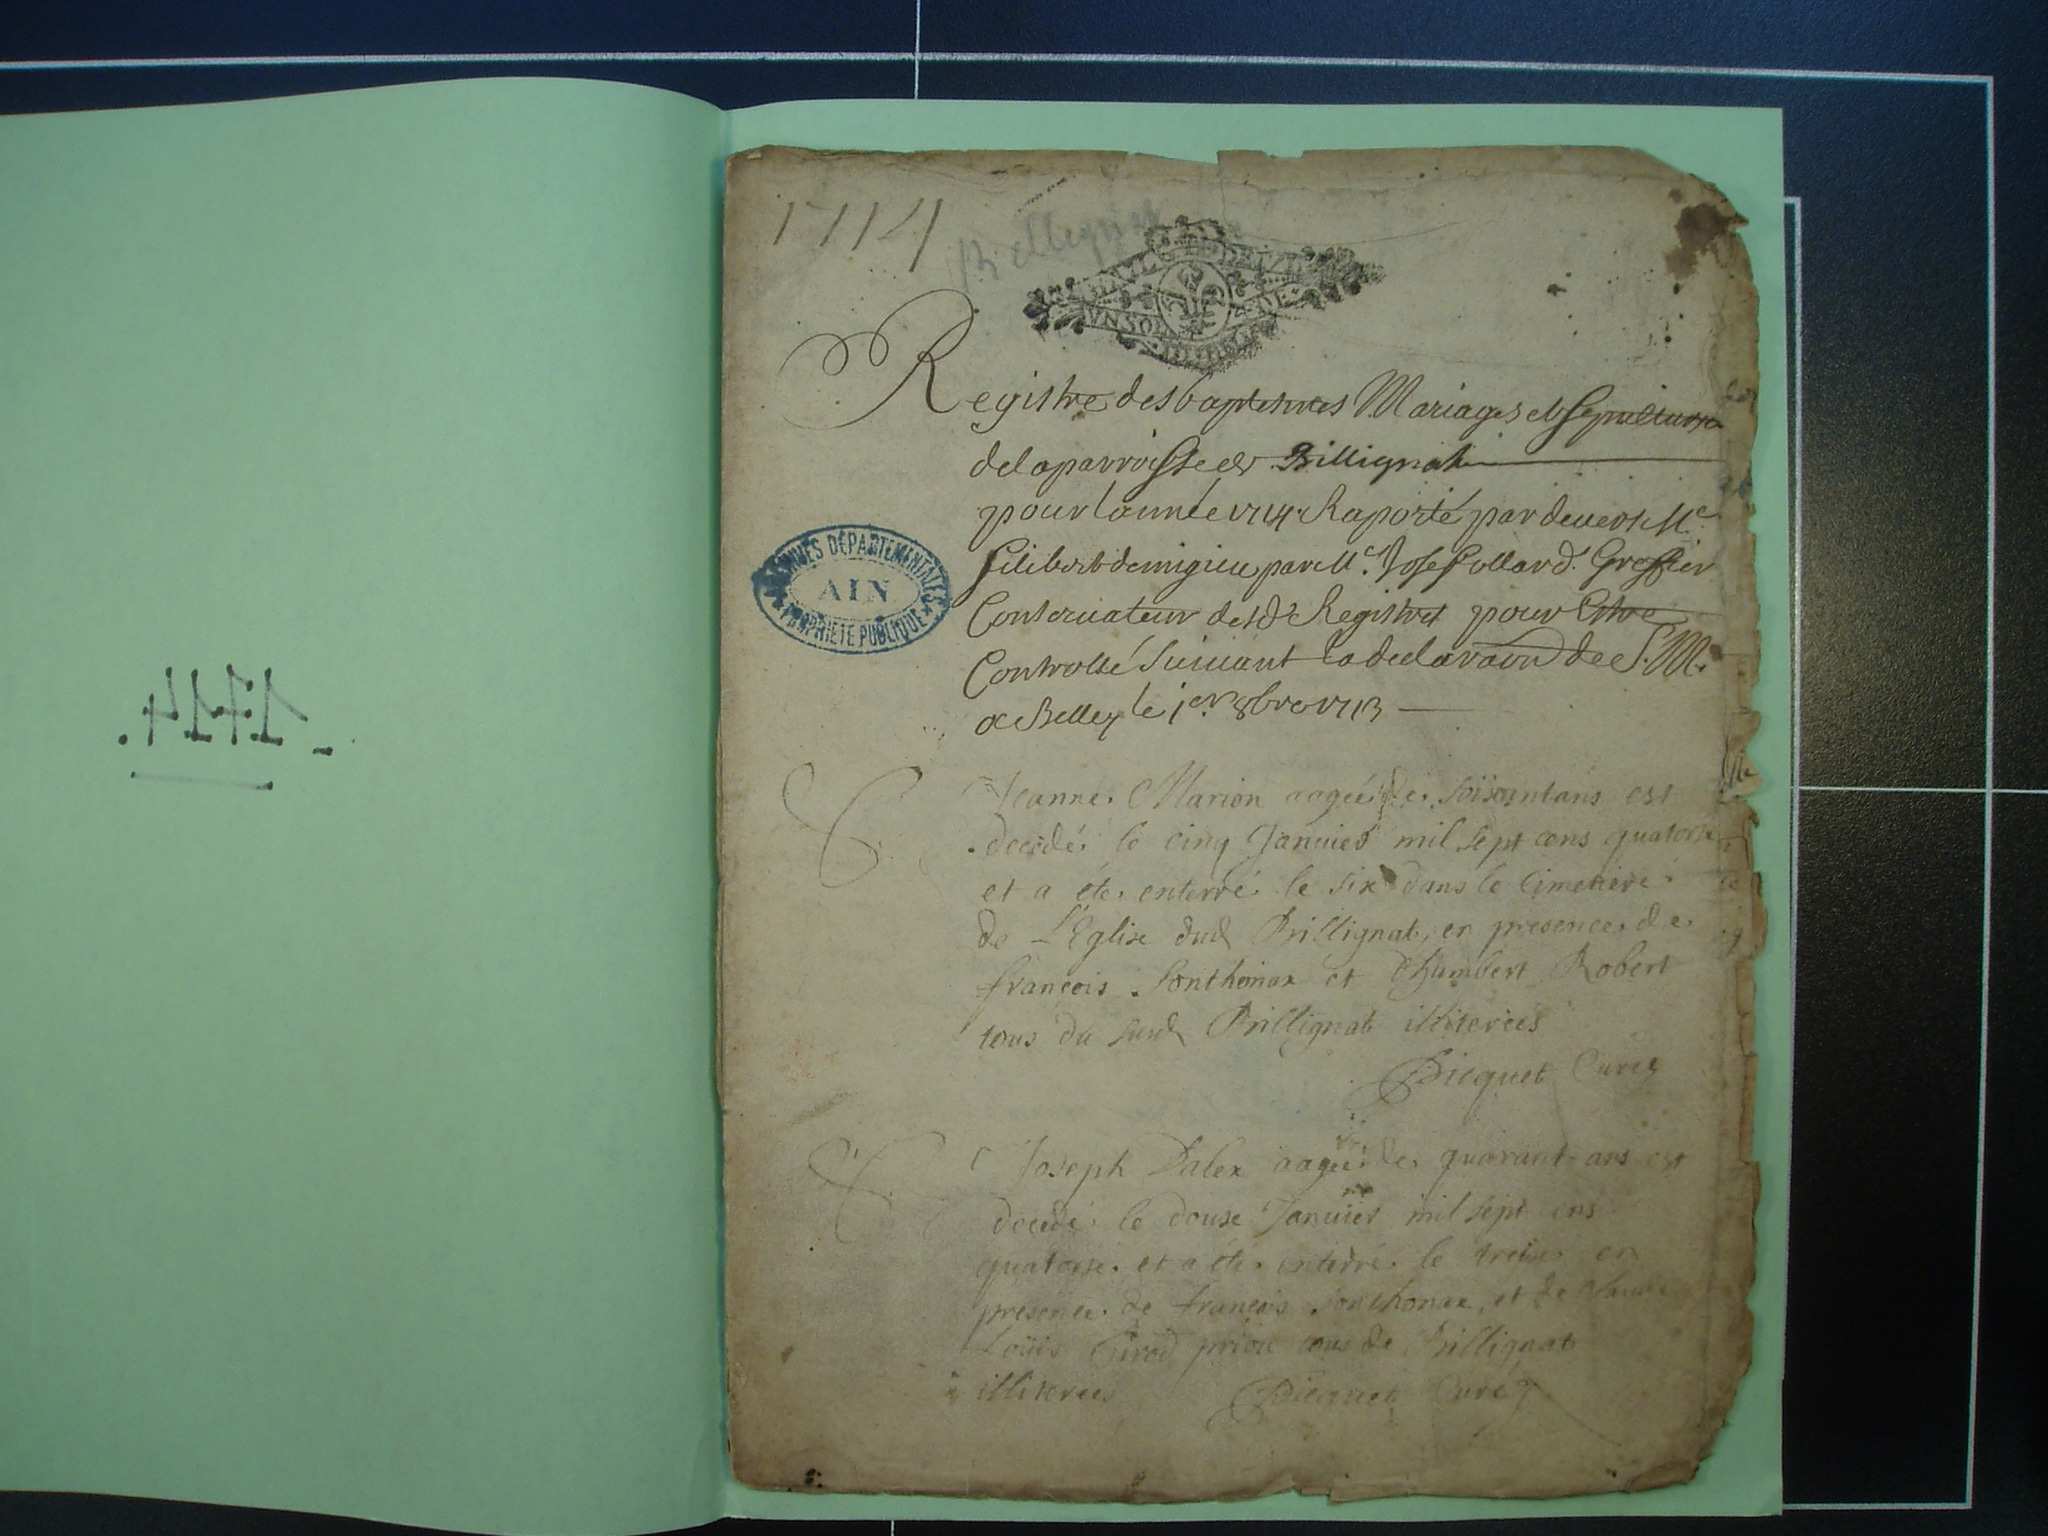 1714.
1714
Billignat
UNSOL
Registre des baptesmes Mariages et sepulture
de la parroisse de Billignat
pour l'année 1714 Raporté pardevers Me
filibert demigieu par Me. Josef ollard. Greffier
Conservateur desde Registres pour Estre
Controllé suivant la declaraõn de S. M.
a Belley le jer 8bre 1713
ARCHIVES DÉPARTEMENTALES
AIN
PROPRIÉTÉ PUBLIQUE
Jeanne Marion aagée de soisantans est
decedé le cinq Janvier mil sept cens quatorse
et a éte enterré le six dans le Cimetiere
de L'Eglise dud Billignat, en presence de
françois Sonthonax et d'humbert Robert
tous du sud Billignat illiterées
Picquet Curé
Joseph Dalex aagée de quarant ans est
decedé le douse Janvier mil sept cens
quatorse et a éte enterré le treise en
presence de françois Sonthonax, et de Claude
Loüis Girod prion tous de Billignat
illiterées Picquet Curé